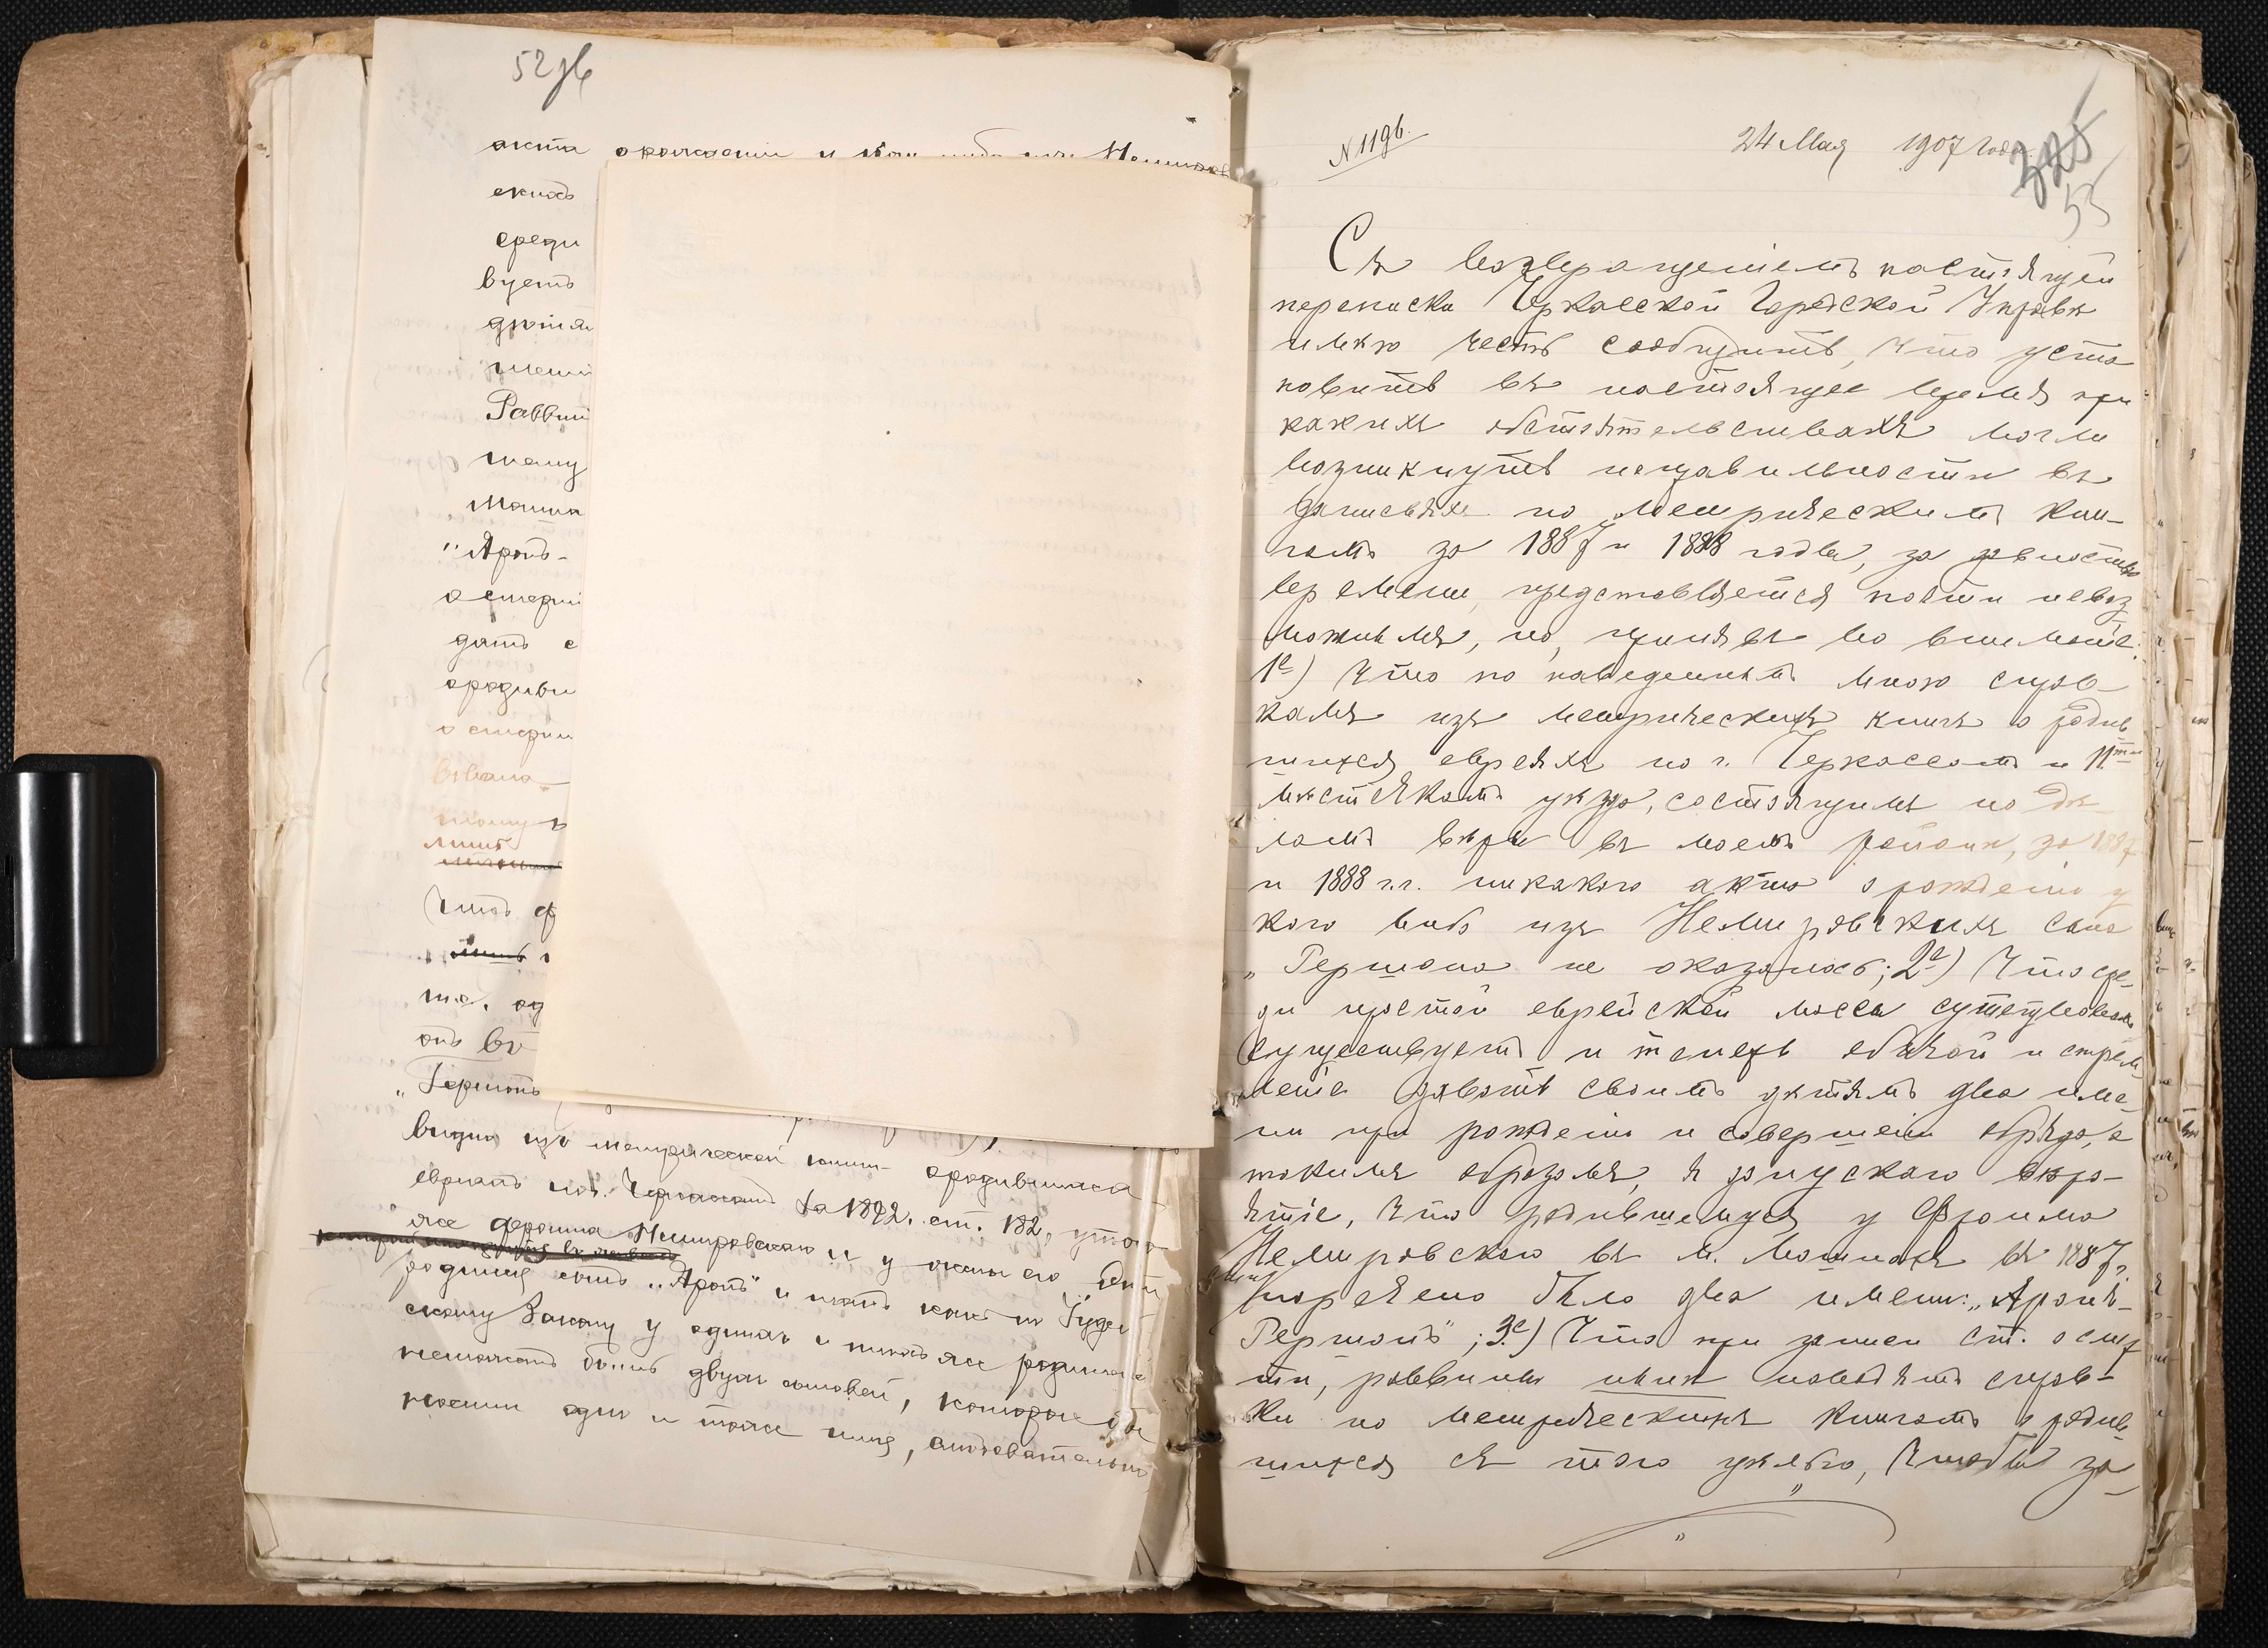 52 зв
акта орождении и кого либо изъ Немиров
скихъ
среди
вуетъ
дѣтям
шени
Раввин
тому
Машна
"Аронъ-
о смерти
датъ с
ородивш
о смерти
тому
лишь
Чтоб
т.е. од
онъ въ
"Гершонъ
видно изъ метрической книги ородившихся
евреяхъ по г. Черкассамъ за 1892. ст. 182, утого
же Фроима Немировскаго и у жены его
родился сынъ "Аронъ" и такъ какъ по Іудей
скому Закону у однихъ и тѣхъ же родителей
неможетъ быть двухъ сыновей, которые бы
носили одно и тоже имя, слѣдовательно
N 1196.
24 Мая 1907 года
325
55
Съ возвращеніемъ настоящей
переписки Черкасской Городской Управѣ
имѣю честь сообщить, что уста
новить въ настоящее время при
какихъ обстоятельствахъ могли
возникнуть неправильности въ
записяхъ по метрическимъ кни-
гамъ за 1887 и 1888 годы, за давностью
времени, представляется почти невоз
можнымъ, но, принявъ во вниманіе:
1е) Что по наведеннымъ мною справ-
камъ изъ метрическихъ книгъ о родив
шихся евреяхъ по г. Черкассамъ и 11ти
мѣстечкамъ уѣзда, состоящимъ по дѣ-
ламъ вѣры въ моемъ районѣ, за 1887
и 1888 г.г. никакого акта о рожденіи у
кого либо изъ Немировскихъ сына
"Гершона не оказалось; 2е) Что сре-
ди простой еврейской массы существовалъ
существуетъ и теперь обычай и стрем-
леніе давать своимъ дѣтямъ два име-
ни при рожденіи и совершеніи обряда, а
такимъ образомъ, я допускаю вѣро-
ятіе, что родившемуся у Фроима
Немировскаго въ м. Мошнахъ въ 1887 г.
наречено было два имени: "Аронъ-
Гершонъ"; 3е) Что при записи ст. о смер
ти, раввины ненаводятъ справ-
ки по метрическимъ книгамъ о родив
шихся съ тою цѣлью, чтобы за-